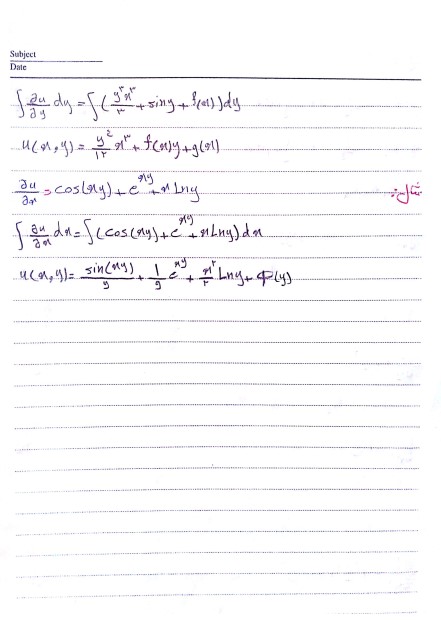 Subject
Date
∫ ∂u/∂y dy = ∫ ( y³x³/۳ + siny + f(x) ) dy
u(x,y) = y²/۱۲ x³ + f(x)y + g(x)
∂u/∂x = cos(xy) + e^xy + x Lny
∫ ∂u/∂x dx = ∫ ( cos(xy) + e^xy + x Lny ) dx
u(x,y) = sin(xy)/y + 1/y e^xy + x²/۲ Lny + φ(y)